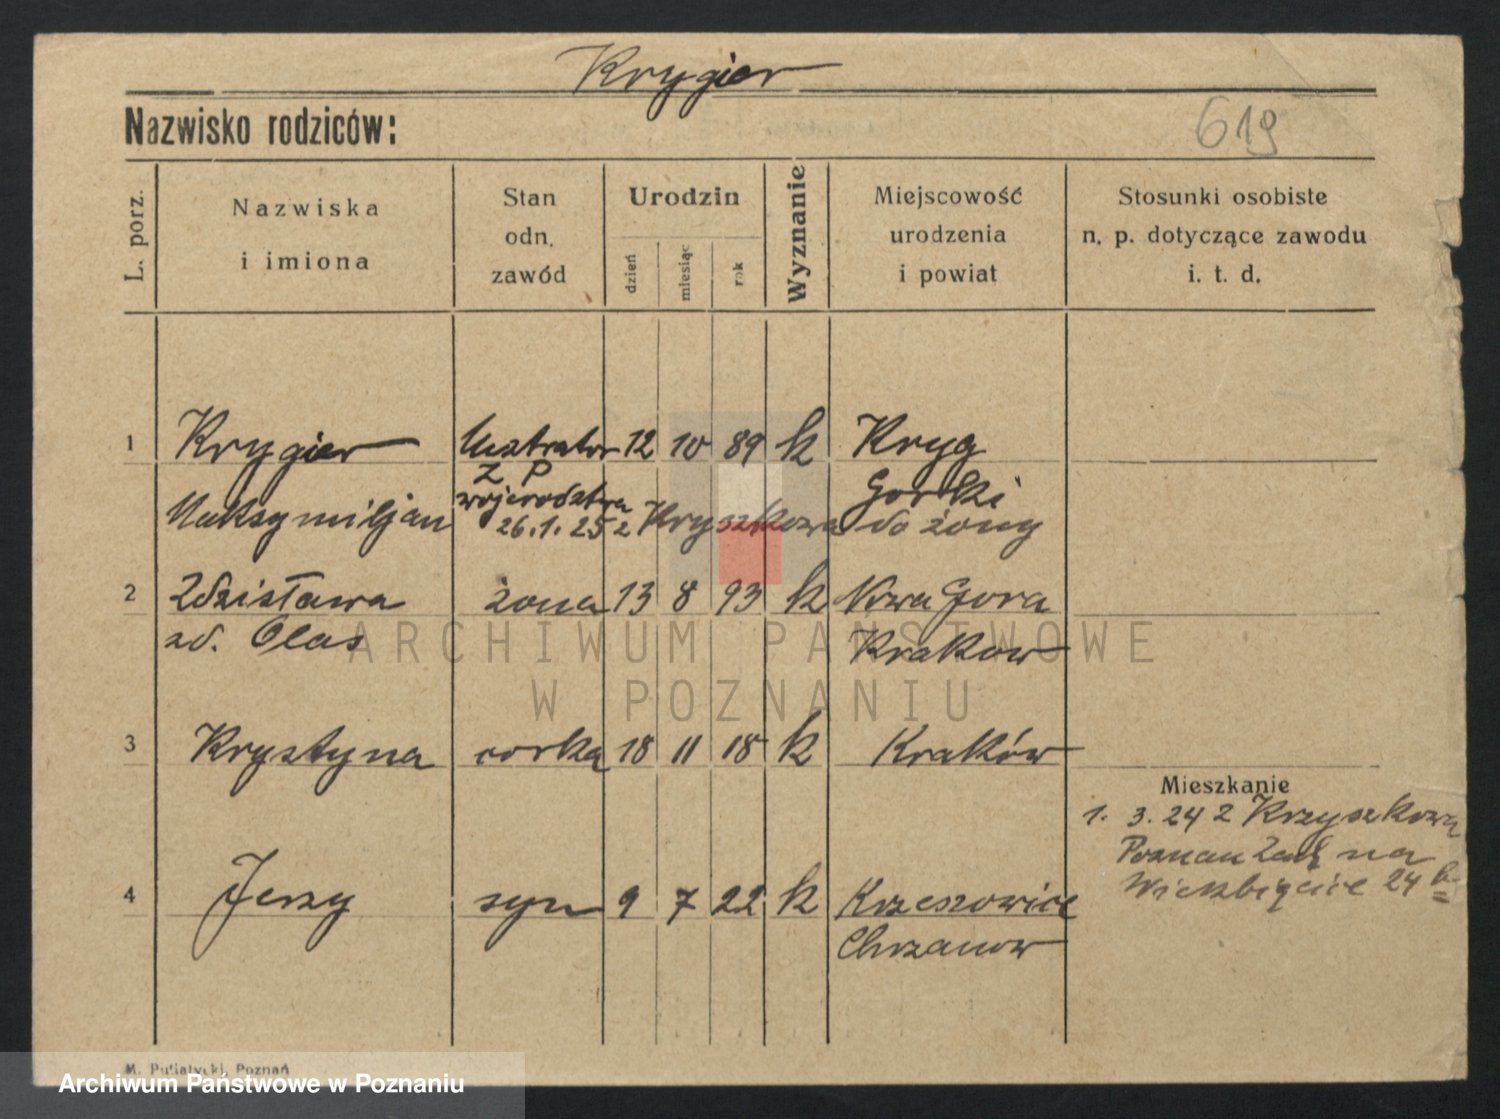 Krygier
Nazwisko rodziców:
619
L. porz.
Nazwiska
i imiona
Stan
odn.
zawód
Urodzin
dzień
miesiąc
rok
Wyznanie
Miejscowość
urodzenia
i powiat
Stosunki osobiste
n. p. dotyczące zawodu
i. t. d.
1 Krygier Lustrator 12 10 89 k Kryg
Z P Gorlki
Maksymiljan wojewodztwa
26.1.25 z Kryszkowa do żony
2 Zdzisława żona 13 8 93 k Nowa Gora
zd. Olas Krakow
ARCHIWUM PAŃSTWOWE
W POZNANIU
3 Krystyna corka 18 11 18 k Kraków
Mieszkanie
1. 3. 24 z Krzyszkowa
Poznan Zach na
24
4 Jerzy syn 9 7 22 k Krzeszowice
Chrzanow
M. Putiatycki, Poznań
Archiwum Państwowe w Poznaniu